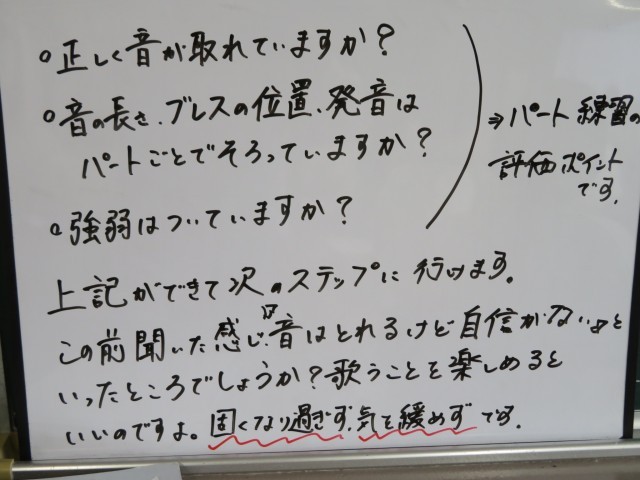 。正しく音が取れていますか?
。音の長さ、ブレスの位置、発音は
パートごとでそろっていますか?
。強弱はついていますか?
⇒パート練習の
評価ポイント
です。
上記ができて次のステップに行けます。
この前聞いた感じは"音はとれるけど自信がない"と
いったところでしょうか?歌うことを楽しめると
いいのですよ。固くなり過ぎず、気を緩めずです。